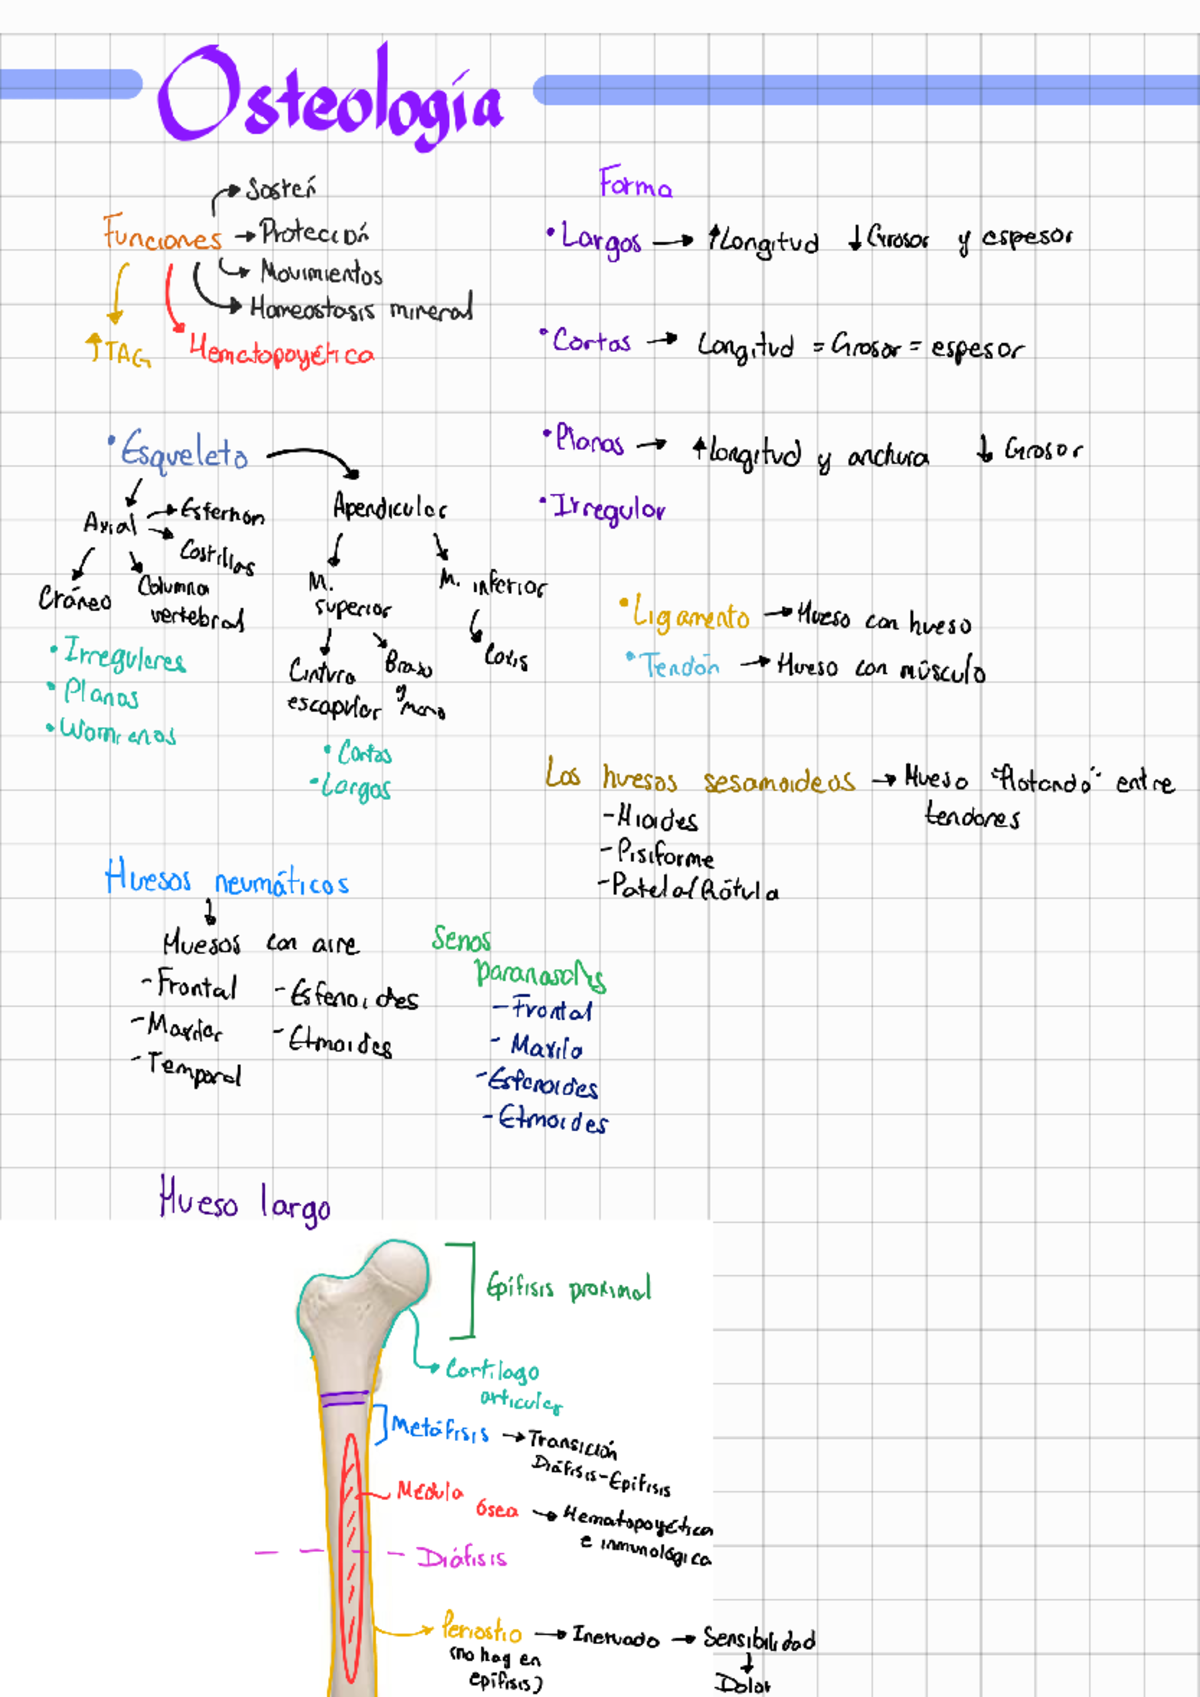 Osteología
Funciones
→ Sostén
→ Protección
→ Movimientos
→ Homeostasis mineral
↑TAG
Hematopoyética
Forma
• Largos → ↑Longitud ↓Grosor y espesor
• Cortos → Longitud = Grosor = espesor
• Planos → ↑Longitud y anchura ↓ Grosor
• Irregular
• Esqueleto
Axial
→ Esternón
→ Costillas
Cráneo
Columna
vertebral
• Irregulares
• Planos
• Wormianos
Apendicular
M.
superior
M. inferior
Cintura
escapular
Brazo
y mano
Coxis
• Cortos
• Largos
• Ligamento → Hueso con hueso
• Tendón → Hueso con músculo
Los huesos sesamoideos → Hueso "flotando" entre
tendones
- Hioides
- Pisiforme
- Patela/Rótula
Huesos neumáticos
Huesos con aire
- Frontal
- Maxilar
- Temporal
- Esfenoides
- Etmoides
Senos
paranasales
- Frontal
- Maxila
- Esfenoides
- Etmoides
Hueso largo
Epífisis proximal
Cartílago
articular
Metáfisis → Transición
Diáfisis-Epífisis
Médula
ósea → Hematopoyética
e inmunológica
Diáfisis
Periostio → Inervado → Sensibilidad
(no hay en
epífisis)
Dolor